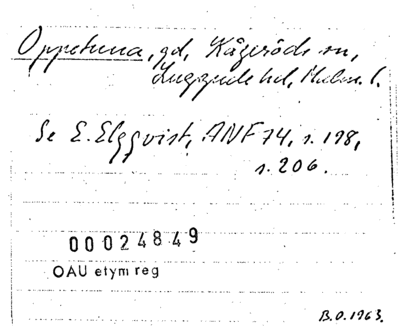 Oppetuna, gd, Kågeröds sn,
Luggude hd, Malm. l.
Se E. Elgqvist, ANF 74, s. 198,
s. 206.
00024849
OAU etym reg
B.O. 1963.